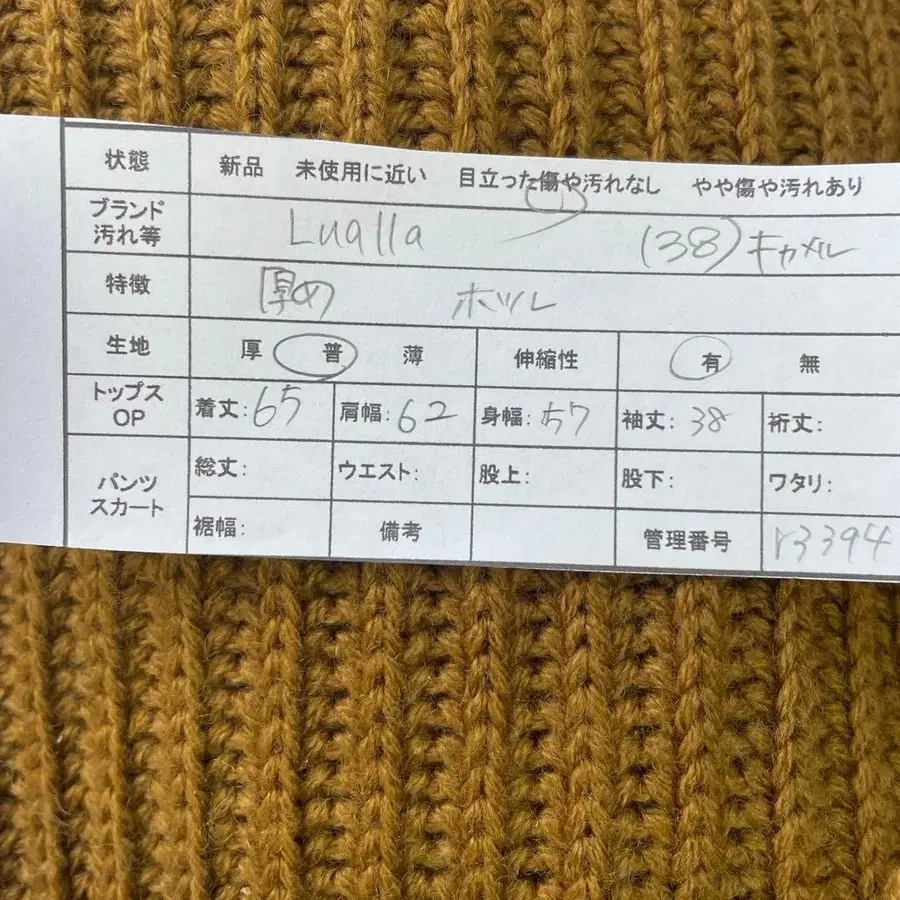 状態 新品 未使用に近い 目立った傷や汚れなし やや傷や汚れあり
ブランド
汚れ等 Lualla (38)キャメル
特徴 厚め ホツレ
生地 厚 普 薄 伸縮性 有 無
トップス
OP 着丈:65 肩幅:62 身幅:57 袖丈:38 裄丈:
パンツ
スカート 総丈: ウエスト: 股上: 股下: ワタリ:
裾幅: 備考 管理番号 r3394